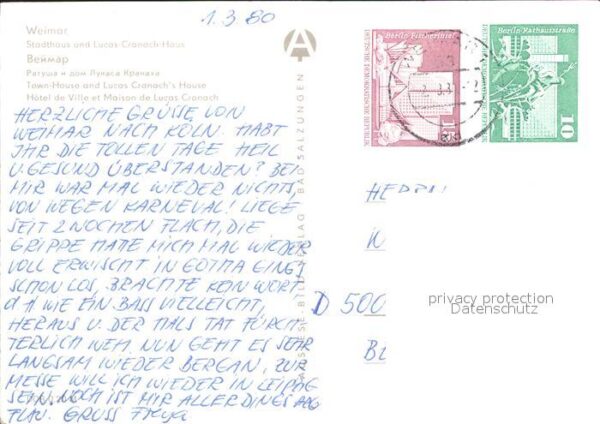 1.3.80
Weimar
Stadthaus und Lucas-Cranach-Haus
Веймар
Ратуша и дом Лукаса Кранаха
Town-House and Lucas Cranach's House
Hôtel de Ville et Maison de Lucas Cranach
HERZLICHE GRÜSSE VON
WEIMAR NACH KÖLN. HABT
IHR DIE TOLLEN TAGE HEIL
U. GESUND ÜBERSTANDEN? BEI
MIR WAR MAL WIEDER NICHTS,
VON WEGEN KARNEVAL! LIEGE
SEIT 2 WOCHEN FLACH, DIE
GRIPPE HATTE MICH MAL WIEDER
VOLL ERWISCHT IN GOTHA GING'S
SCHON LOS, BRACHTE KEIN WORT
WIE EIN BASS VIELLEICHT,
HERAUS U. DER HALS TAT FÜRCH
TERLICH WEH. NUN GEHT ES SEHR
LANGSAM WIEDER BERGAN, ZUR
MESSE WILL ICH WIEDER IN LEIPZIG
SEIN. NOCH IST MIR ALLERDINGS
FLAU. GRUSS
BAD SALZUNGEN
Berlin-Fischerkiet
DEUTSCHE DEMOKRATISCHE REPUBLIK
15
Berlin-Rathausstraße
10
HERRN
IN
D 500
privacy protection
Datenschutz